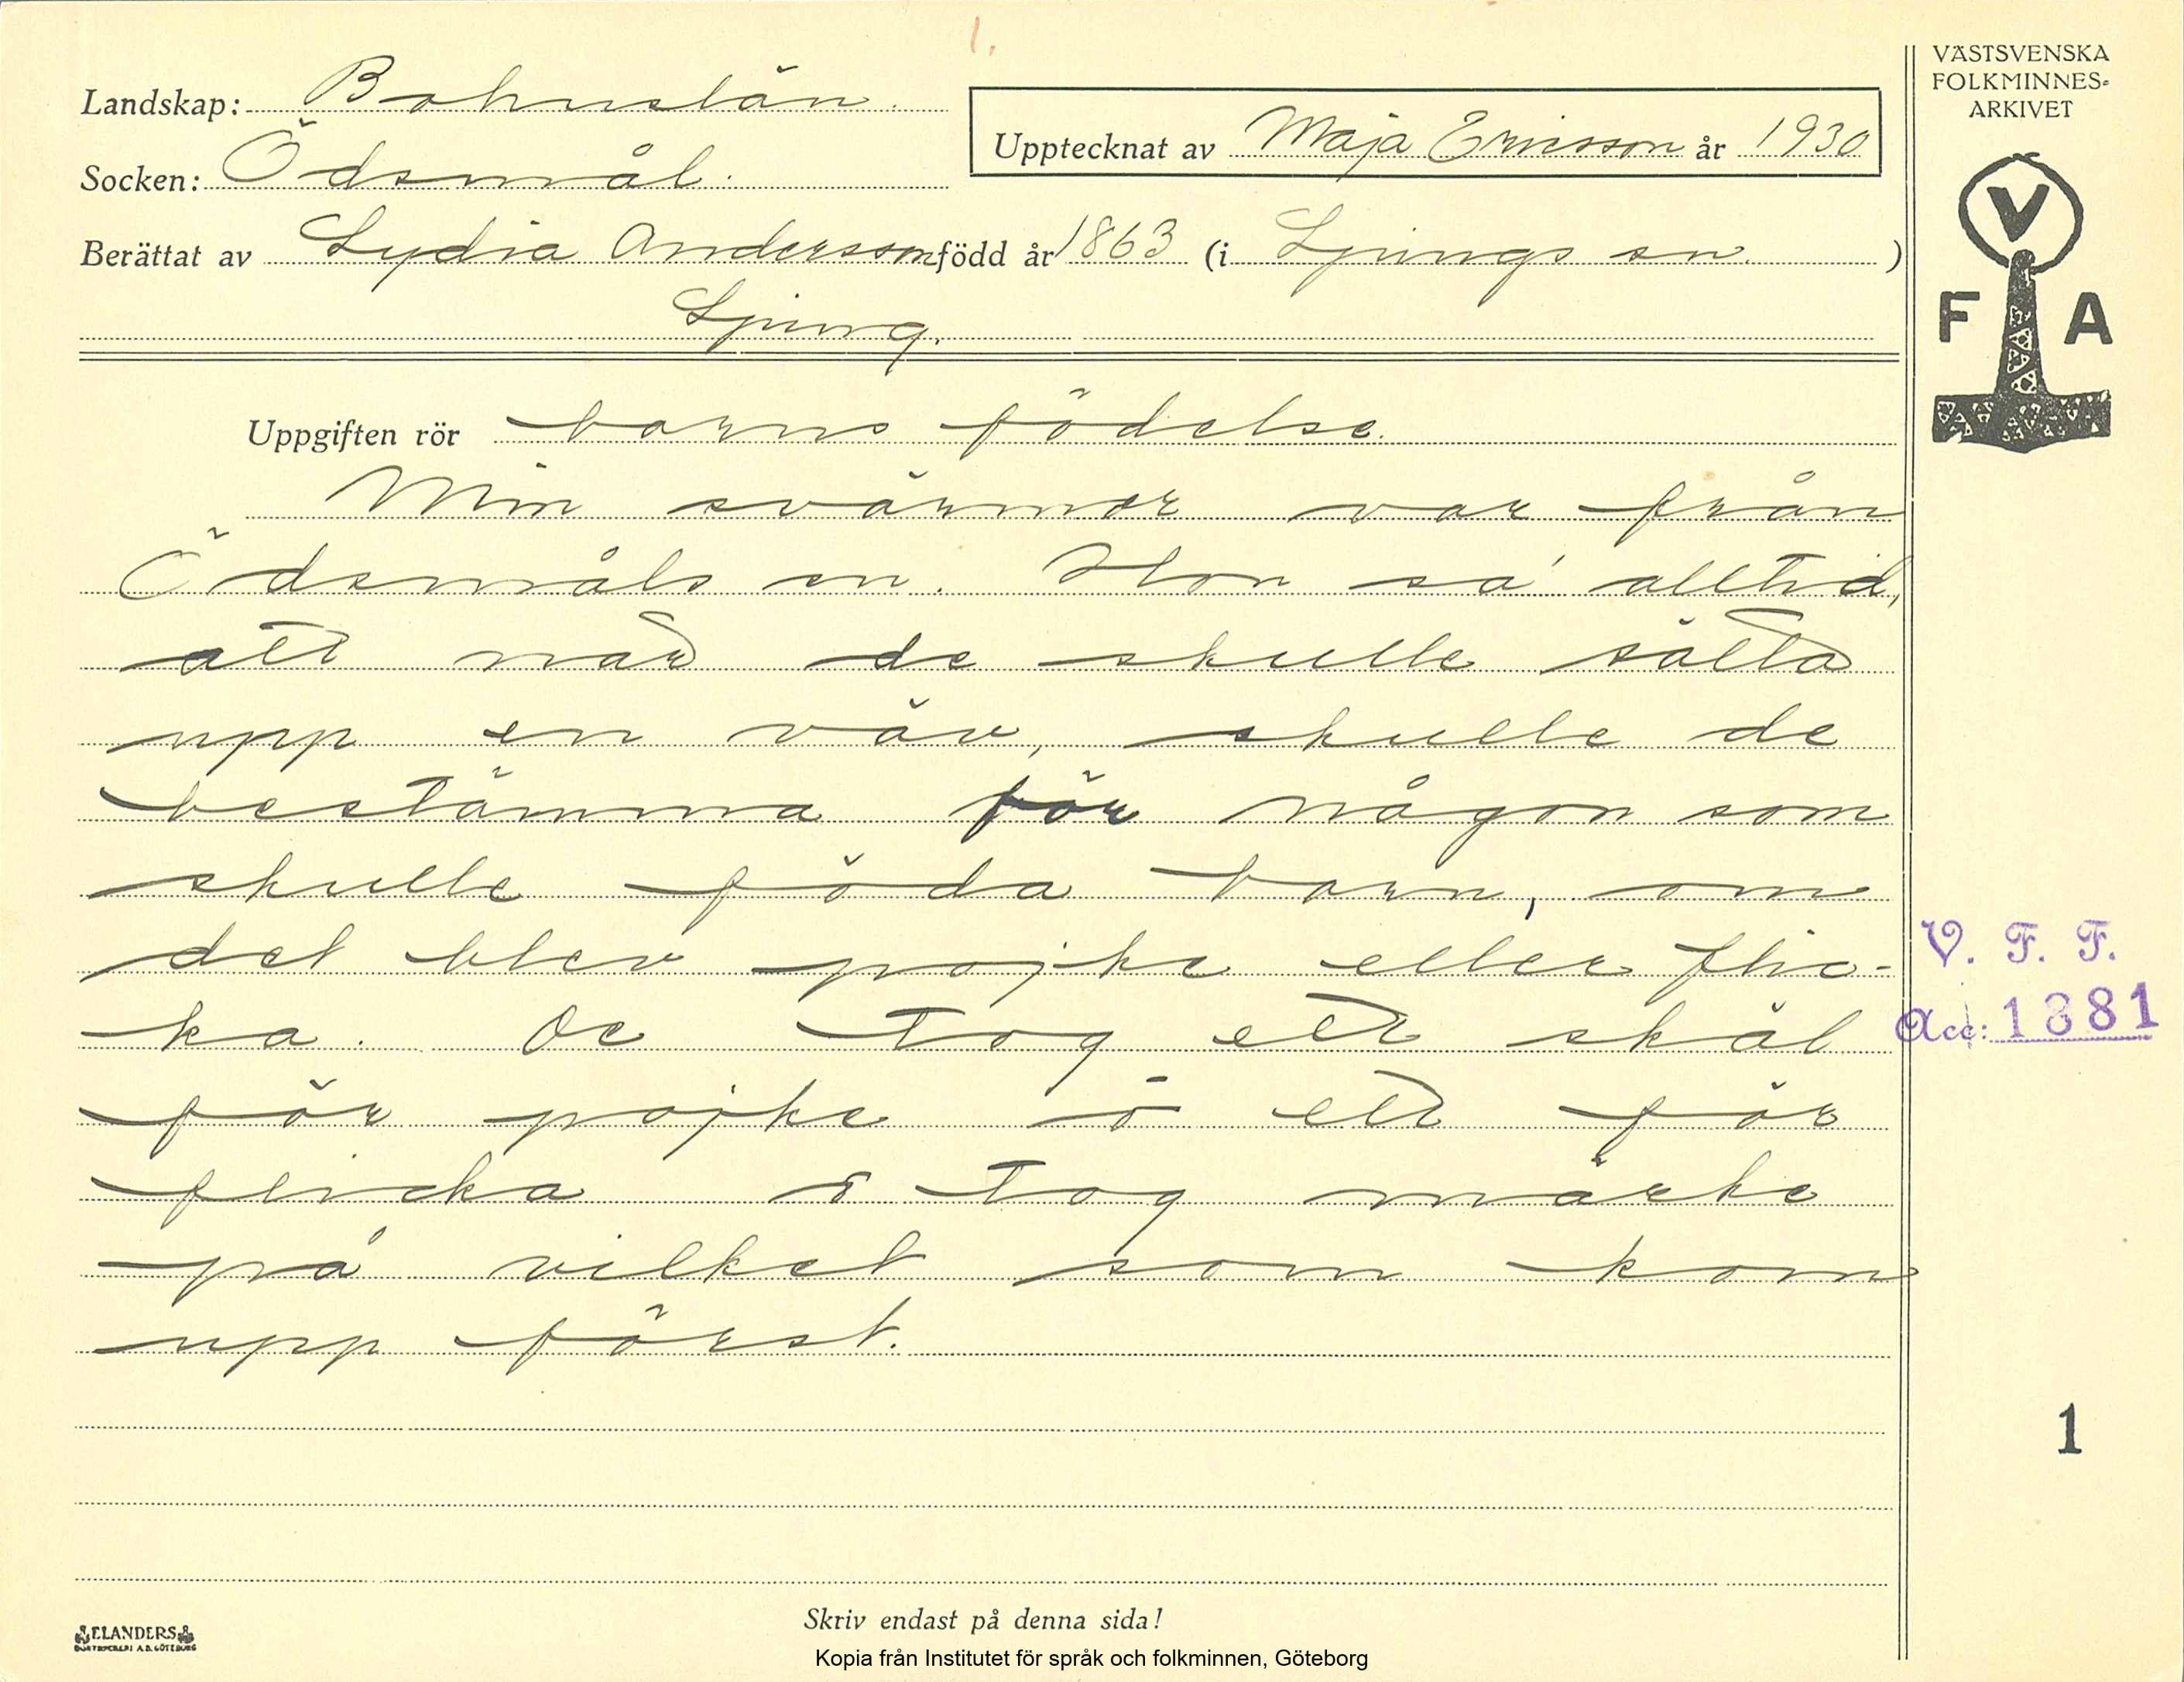 1.
VÄSTSVENSKA
FOLKMINNES-
ARKIVET
Landskap: Bohuslän.
Upptecknat av Maja Ericsson år 1930
Socken: Ödsmål.
Berättat av Lydia Andersson född år 1863 (i Ljungs sn. )
Ljung.
V
F A
Uppgiften rör barns födelse.
Min svärmor var från
Ödsmåls sn. Hon sa' alltid,
att när de skulle sätta
upp en väv, skulle de
bestämma för någon som
skulle föda barn, om
det blev pojke eller flic-
ka. De tog ett skäl
för pojke ō ett för
flicka o tog märke
på vilket som kom
upp först.
V. F. F.
Acc: 1881
1
Skriv endast på denna sida!
ELANDERS
BOKTRYCKERI A.B. GÖTEBORG
Kopia från Institutet för språk och folkminnen, Göteborg